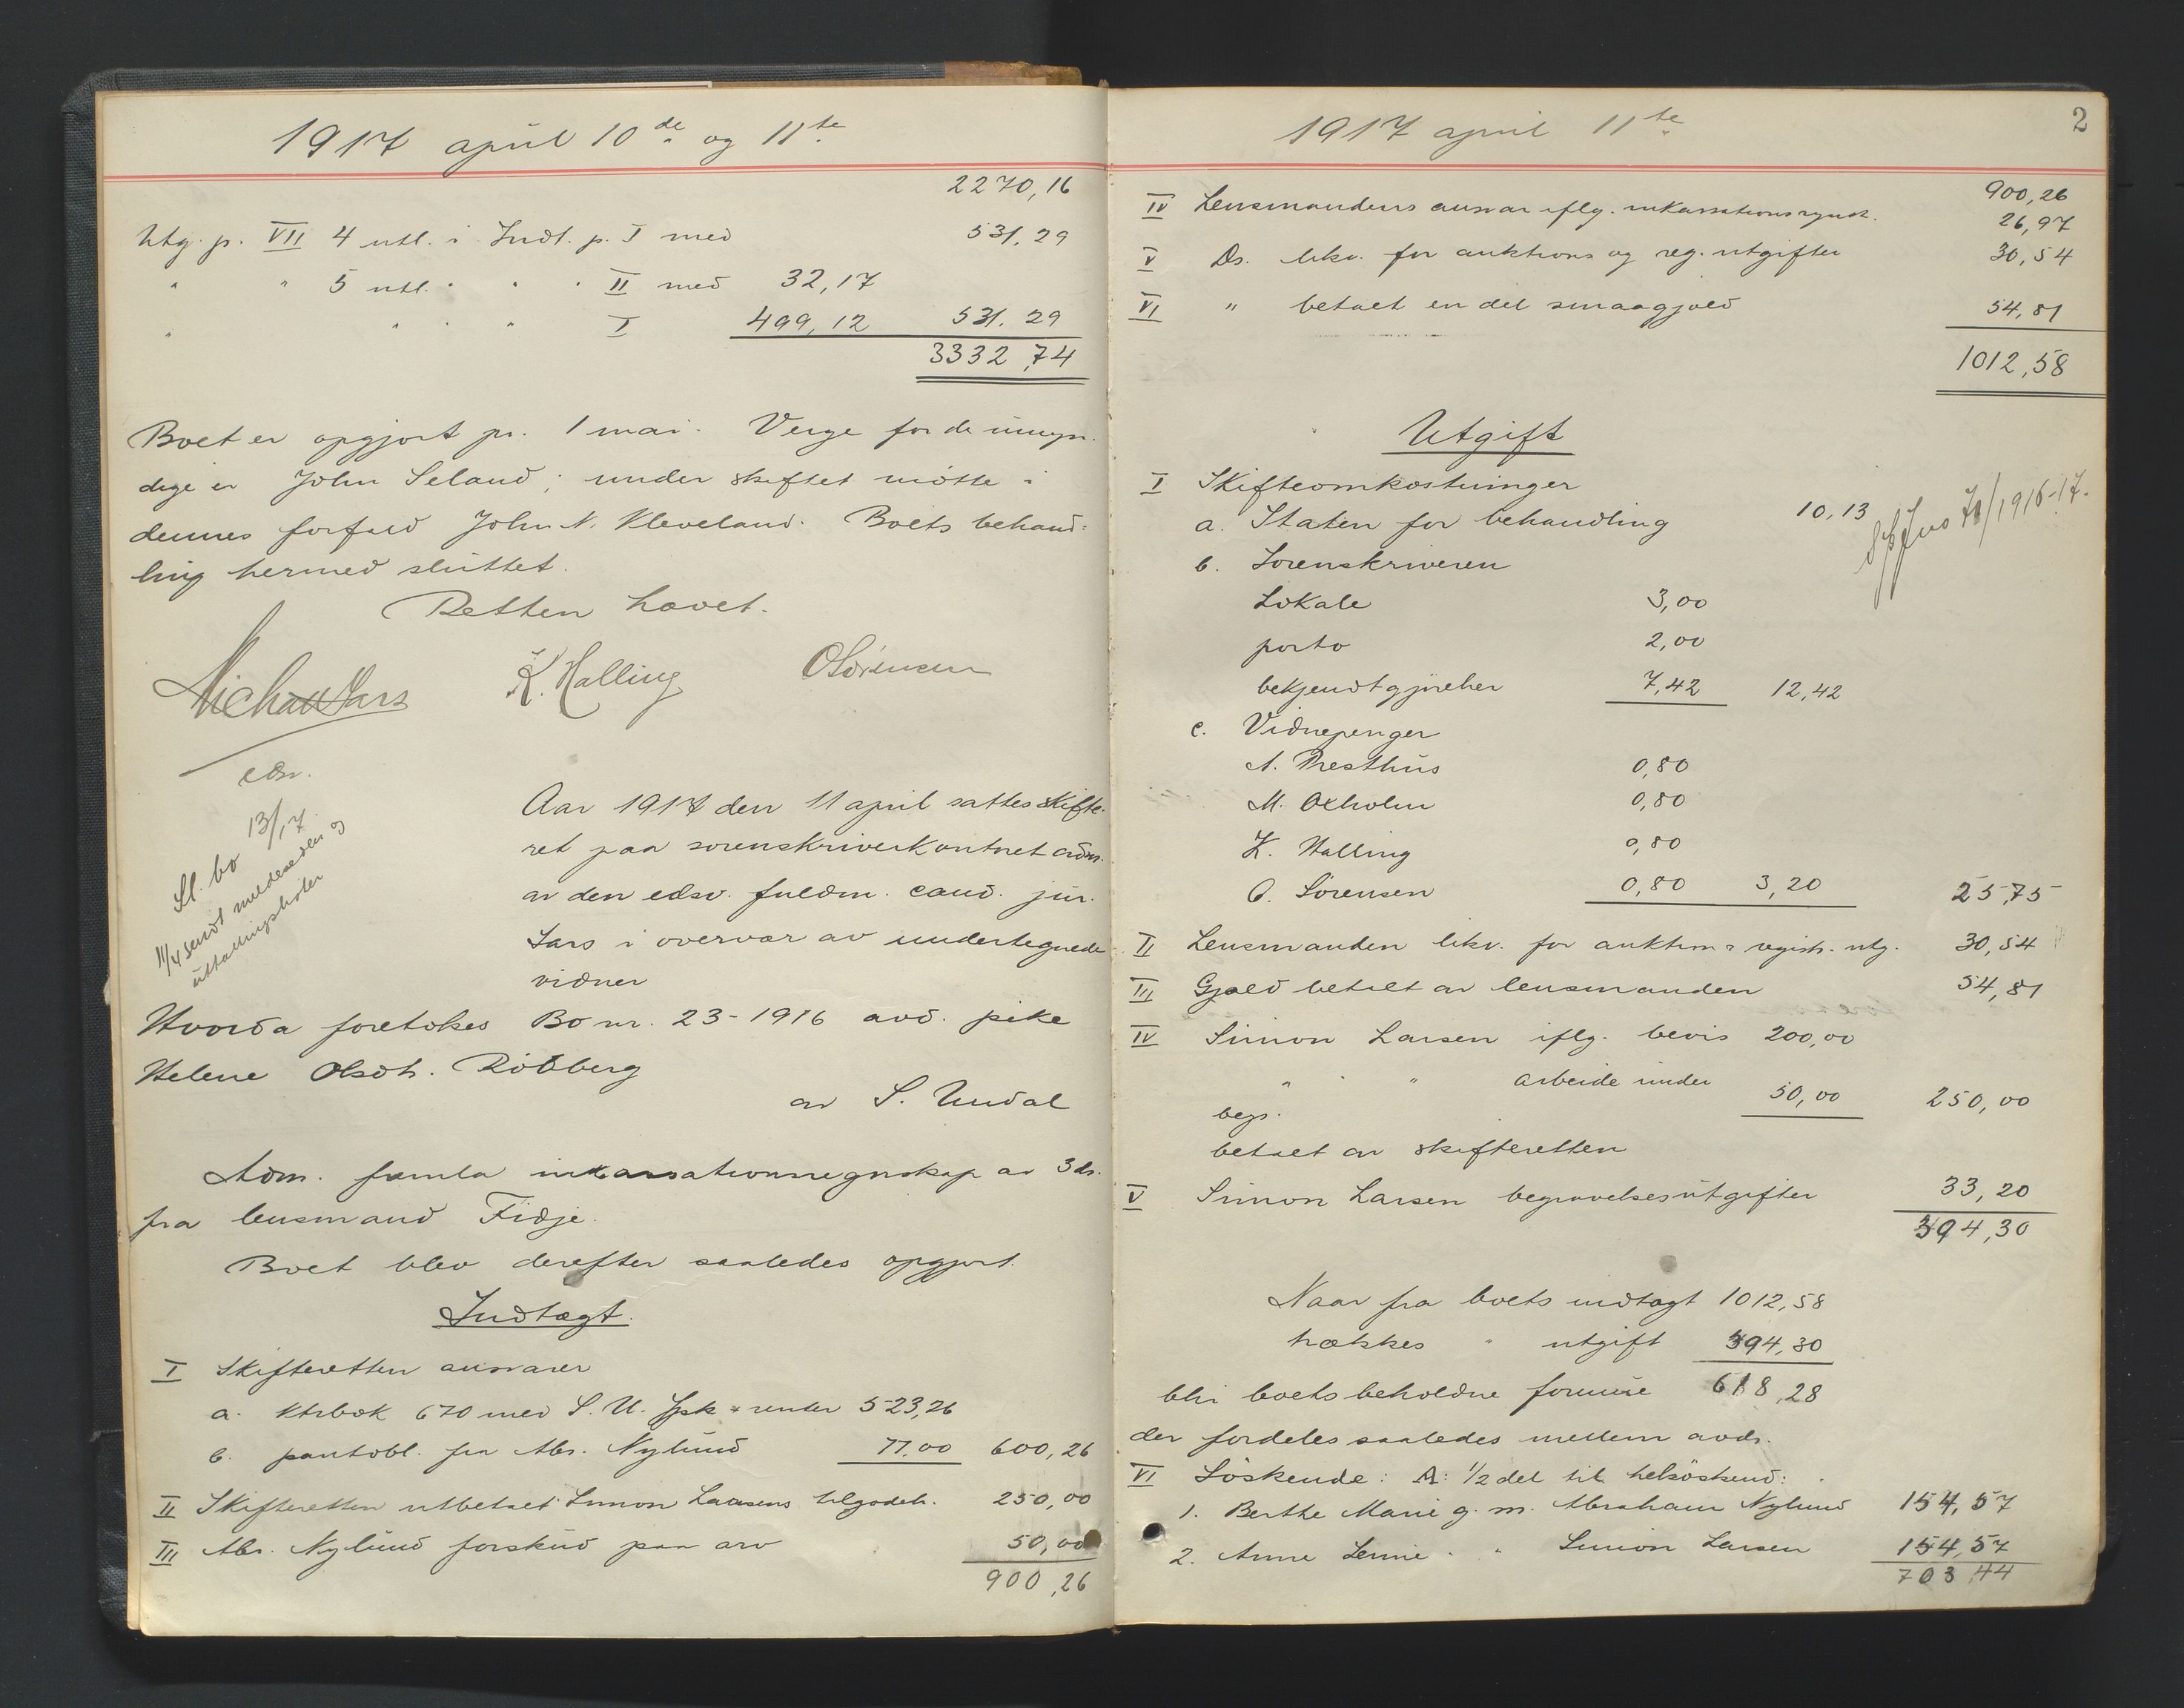 1917 april 10de og 11te
2270,16
Utg. p. VII 4 utl. i Indt. p. I med 531,29
" " 5 utl. " " " II med 32,17
" " " " I 499,12 531.29
3332,74
Boet er opgjort pr. 1 mai. Verge for de umyn-
dige er John Seland; under skiftet møtte i
dennes forfald John N. Kleveland. Boets behand-
ling hermed sluttet.
Retten hævet.
K. Halling O Sörensen
edsv.
Sl. bo 13/17
11/4 sendt meldesedler og
uttallingslister
Aar 1917 den 11 april sattes skifte-
ret paa sorenskriverkontoret adm.
av den edsv. fuldm. cand. jur.
Lars i overvær av undertegnede
vidner
Hvorda foretokes Bo nr. 23-1916 avd. pike
Helene Olsdt.
av S. Undal
Adm. fremla inkassationsregnskap av 3 ds.
fra lensmand Fidje.
Boet blev derefter saaledes opgjort.
Indtægt.
I Skifteretten ansvarer
a. ktrbok 670 med S. U. Spk + renter 523,26
b. pantobl. fra Abr. Nylund 77.00 600,26
II Skifteretten utbetalt Simon Larsens tilgodeh. 250,00
III Abr. Nylund forskud paa arv 50,00
900,26
1917 april 11te
2
900,26
IV Lensmandens ansvar iflg. inkassationsregnsk. 26,97
V Ds. likv. for auktions og reg. utgifter 30,54
VI " betalt en del smaagjæld 54,81
1012,58
Utgift
I Skifteomkostninger
a. Staten for behandling 10,13
/1916-17.
b. Sorenskriveren
Lokale 3,00
porto 2,00
bekjendtgjørelser 7,42 12,42
c. Vidnepenger
A. Presthus 0,80
M. Oxholm 0,80
K. Halling 0,80
O. Sörensen 0,80 3,20 25,75
II Lensmanden likv. for auktion & registr. utg. 30,54
III Gjæld betalt av lensmanden 54,81
IV Simon Larsen iflg. bevis 200,00
" " " arbeide under
begr. 50,00 250,00
betalt av skifteretten
V Simon Larsen begravelsesutgifter 33,20
394,30
Naar fra boets indtægt 1012,58
trækkes " utgift 394,30
blir boets beholdne formue 618,28
der fordeles saaledes mellem avds.
VI Söskende: A: 1/2 del til helsöskend:
1. Berthe Marie g. m. Abraham Nylund 154,57
2. Anne Lenie " " Simon Larsen 154,57
703,44